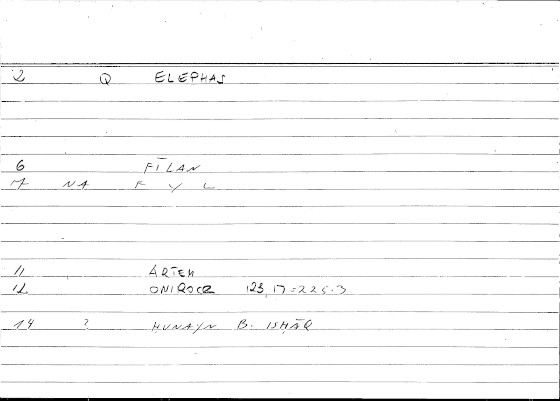 2 Q ELEPHAS
6 FĪLAN
7 NA F Y L
11 ARTEM
12 ONIROCR 123,17=225.3
14 ? ḤUNAYN B. ISḤĀQ